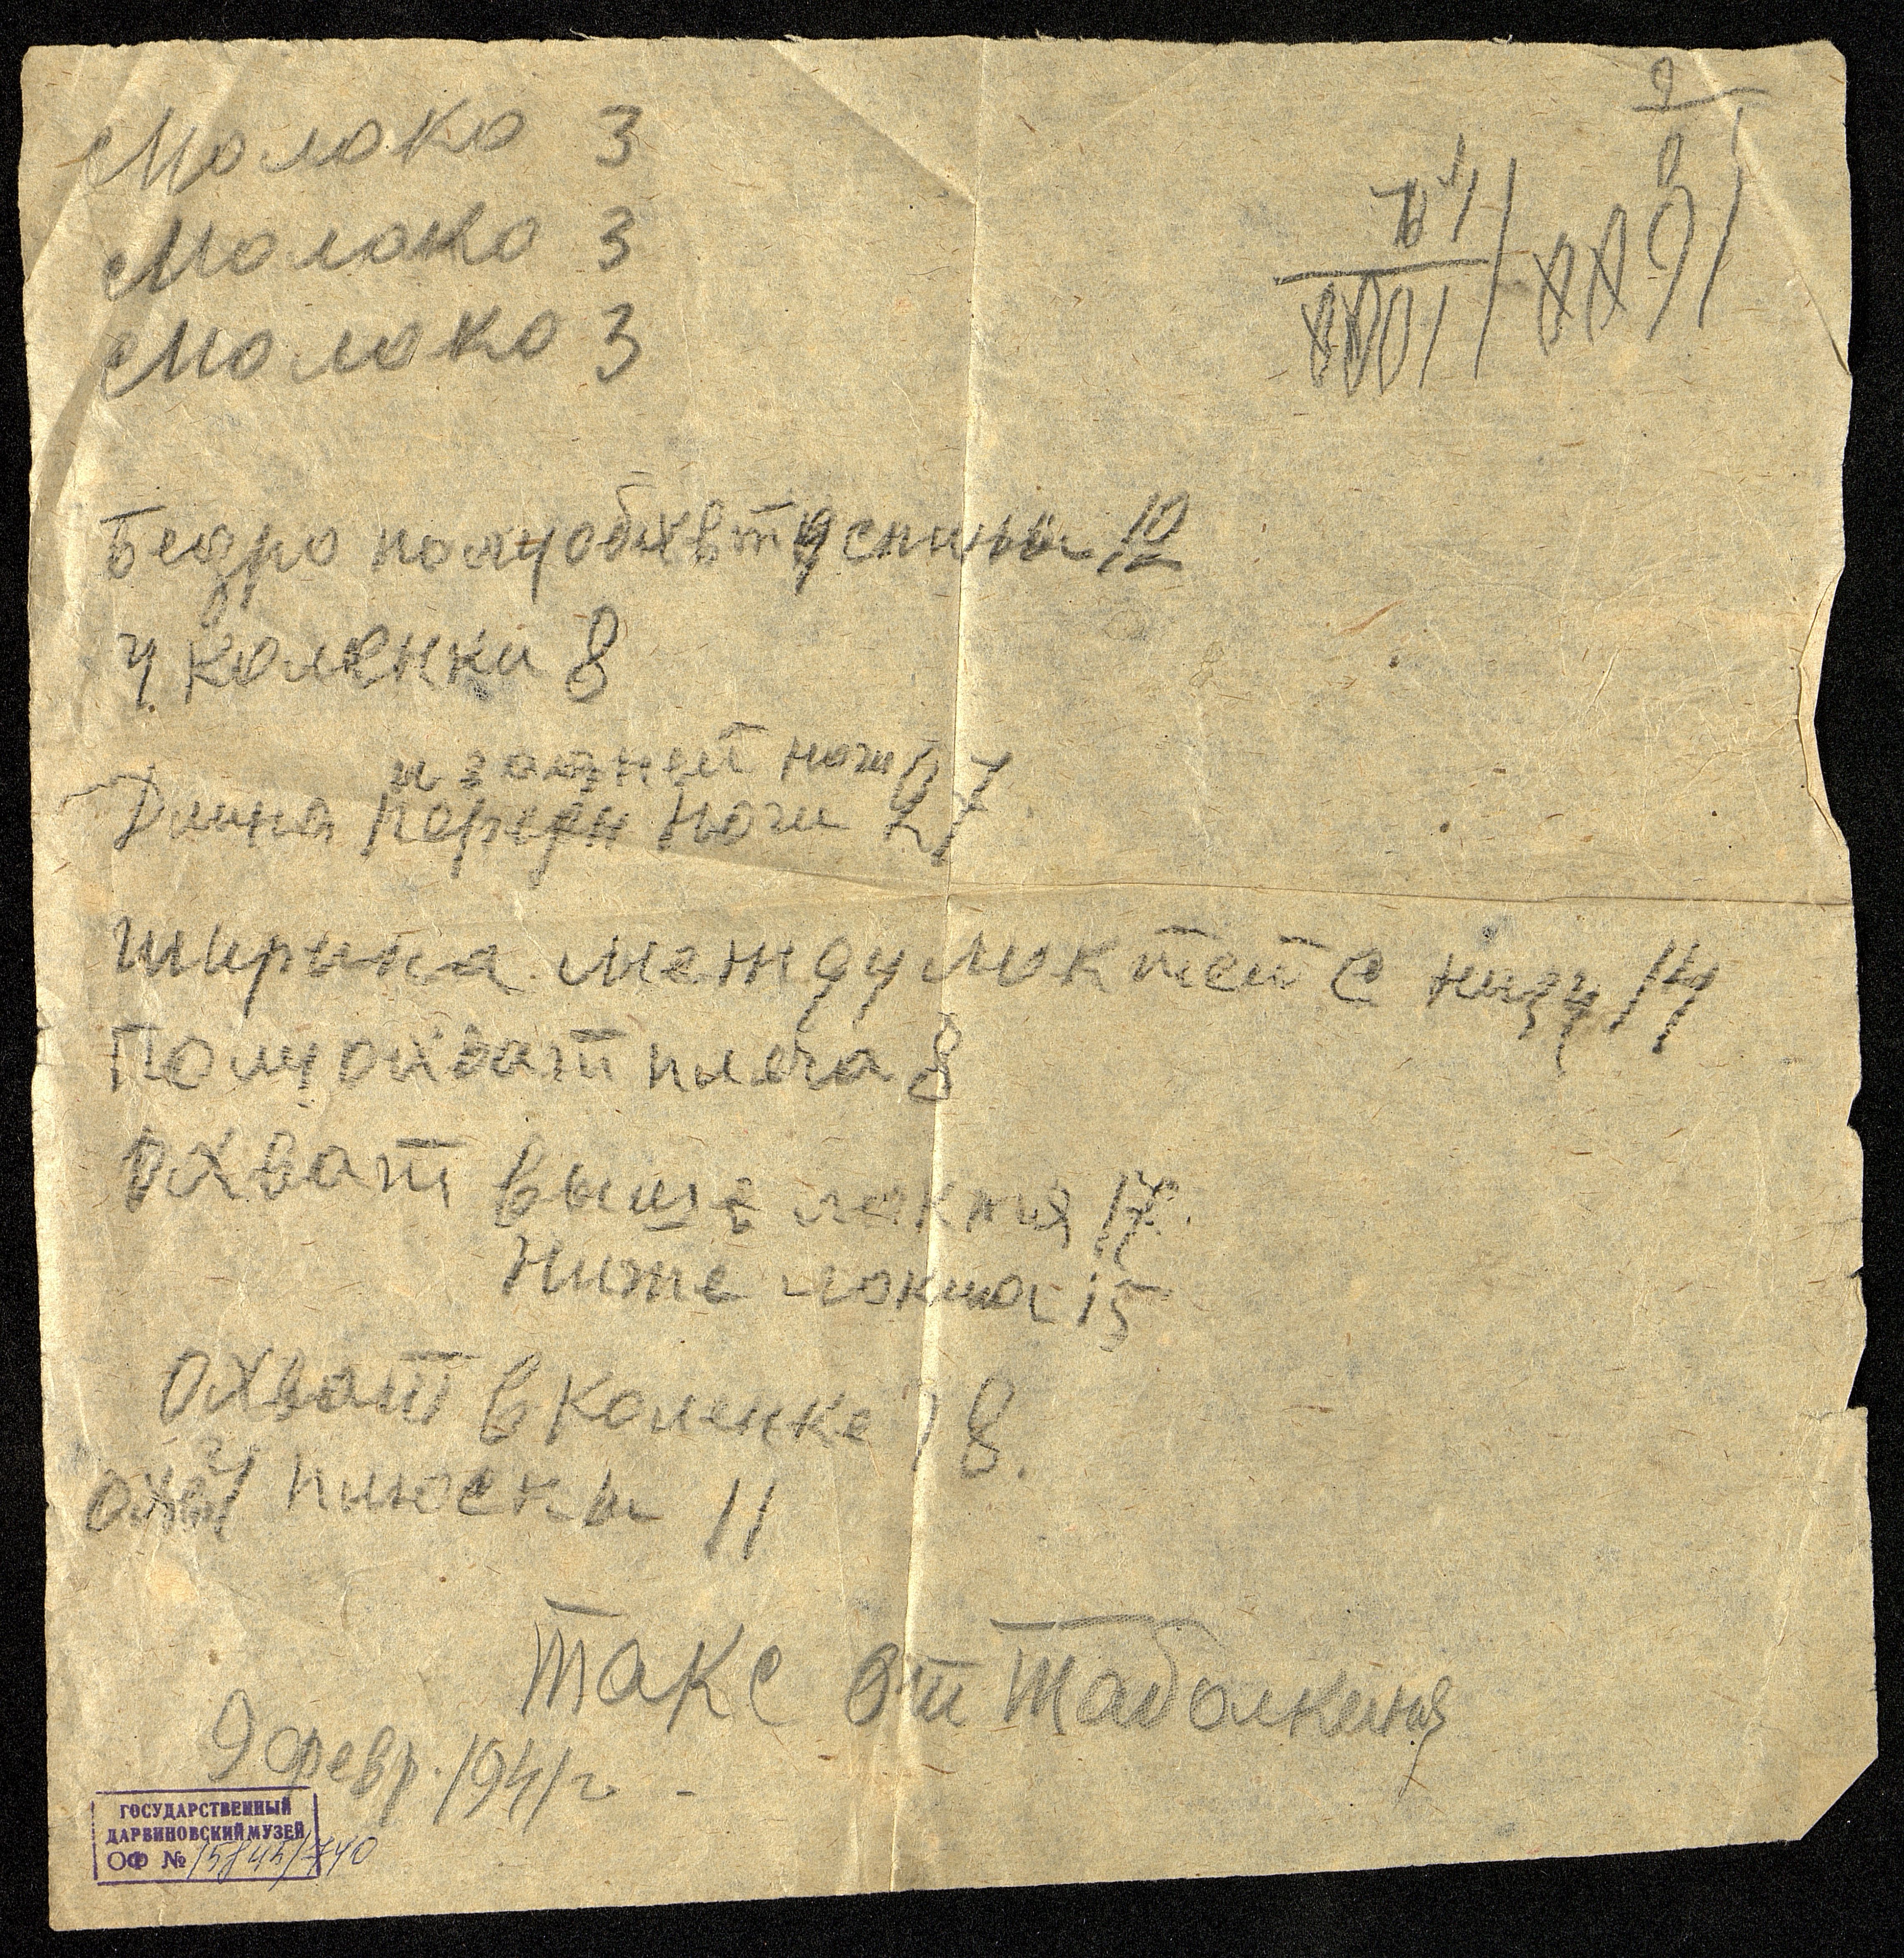 Молоко 3
Молоко 3
Молоко 3
Бедро полуобхвт у спины 10
у коленки 8
и задней ноги
Длина передн ноги 27
Ширина между локтей с низу 14
Полуохват плеча 8
Охват выше локтя 17.
Ниже локтя 15
Охват в коленке 18.
у плюскы 11
Такс от Таболкина
9 февр. 1941 г
ГОСУДАРСТВЕННЫЙ
ДАРВИНОВСКИЙ МУЗЕЙ
ОФ № 15845/740